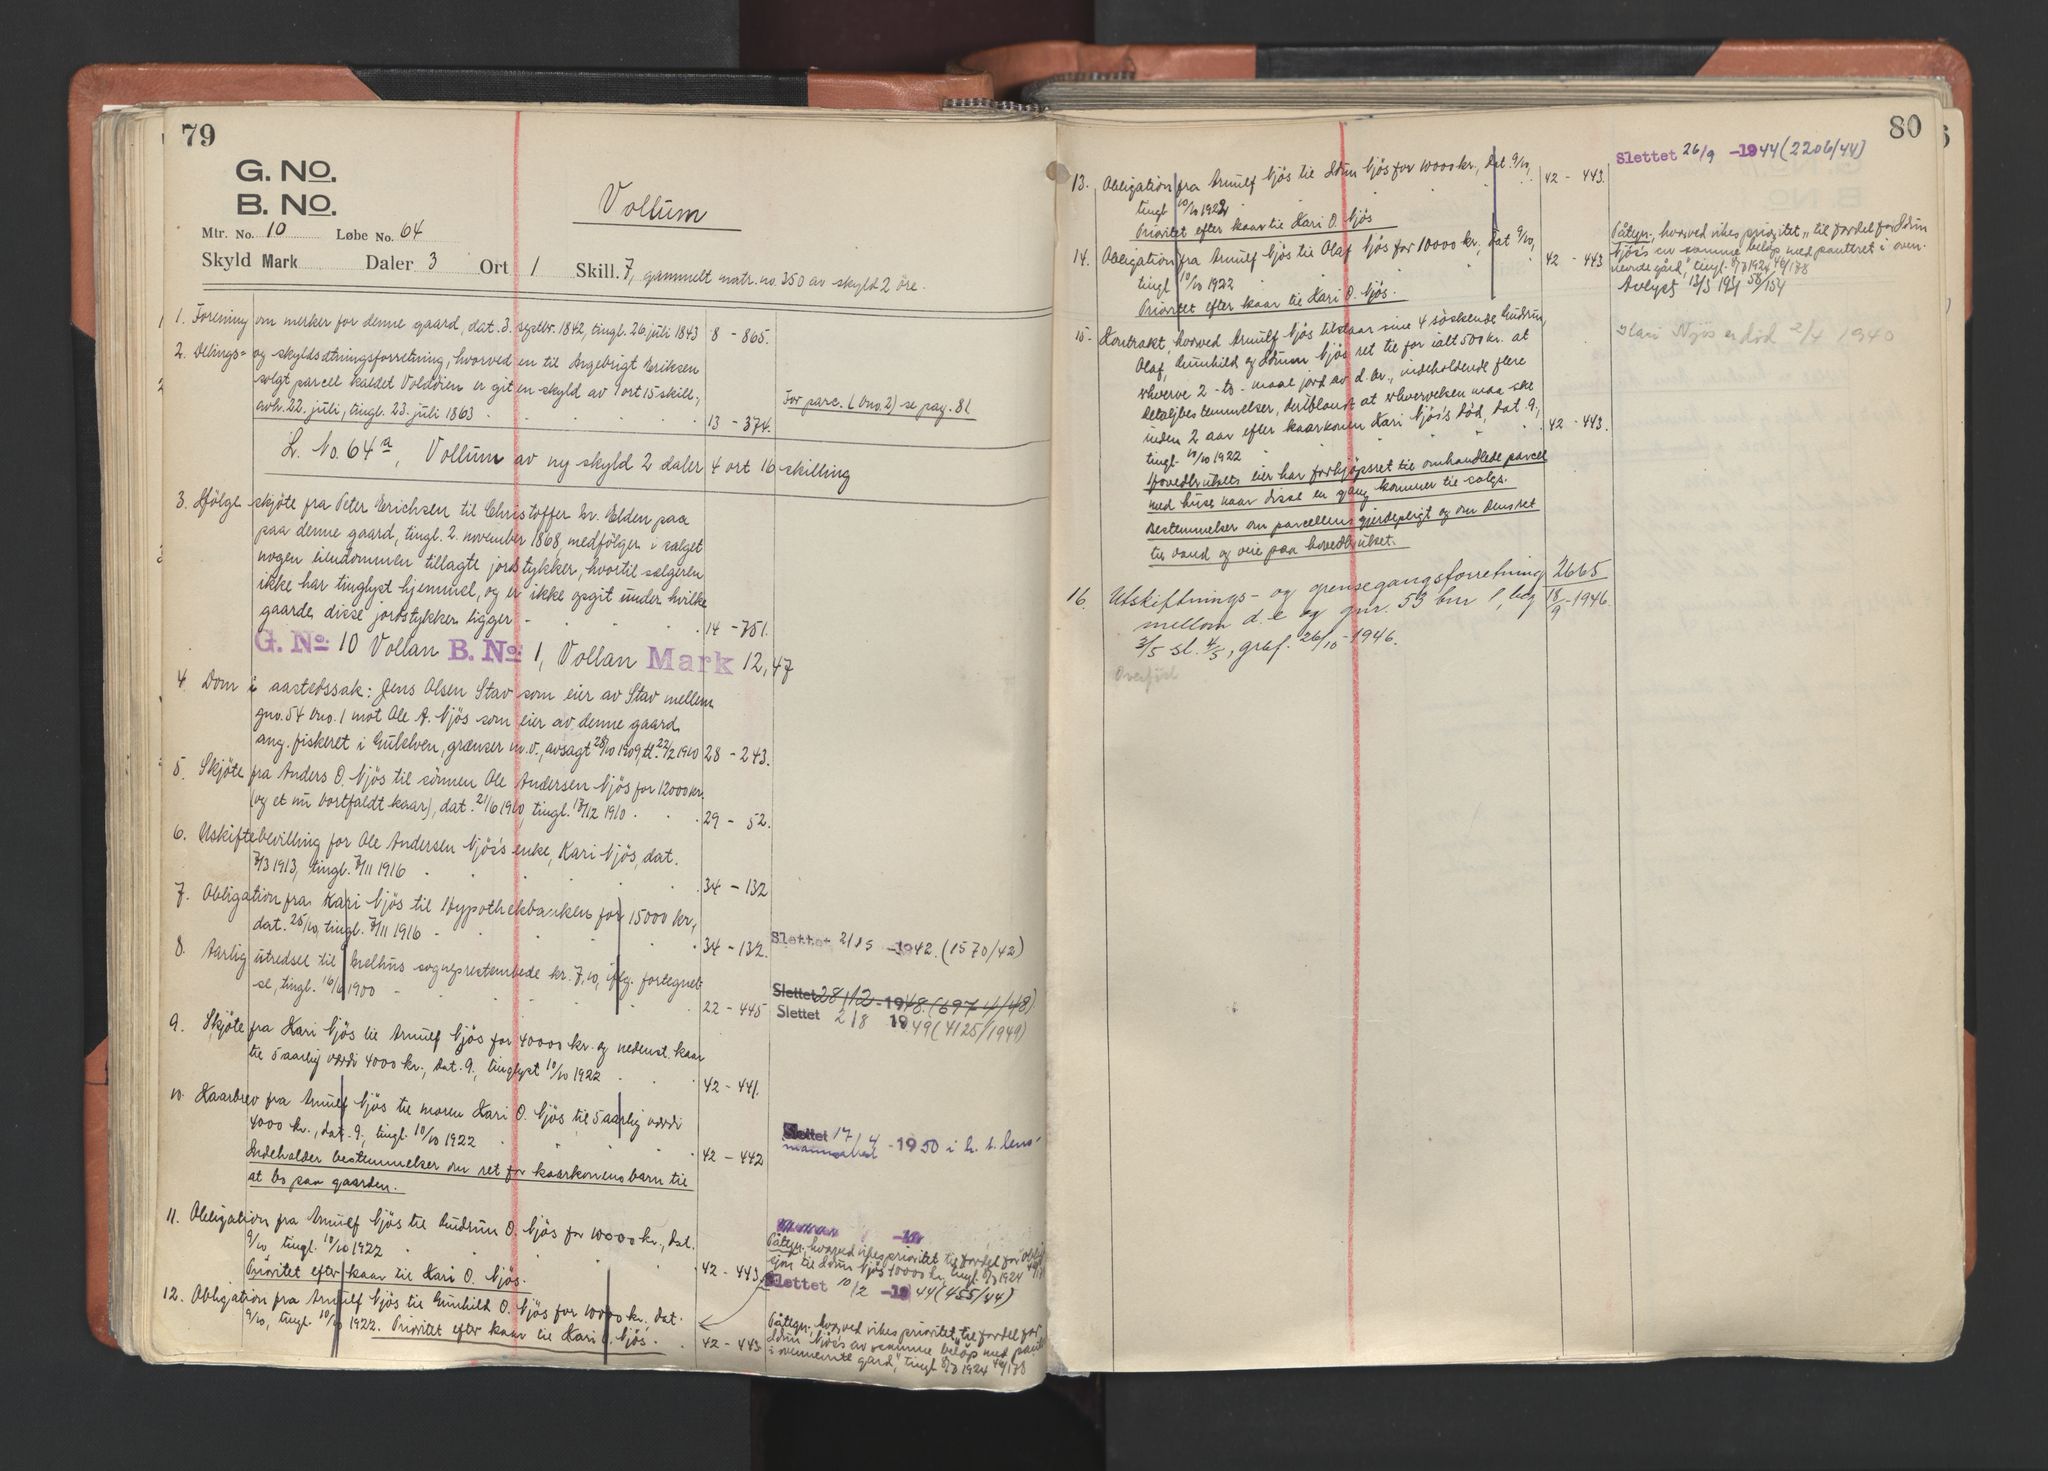 79
G. No.
B. No.
Vollum
Mtr. No. 10 Løbe No. 64
Skyld Mark Daler 3 Ort 1 Skill. 7, gammelt matr. no. 350 av skyld 2 öre.
1. Forening om merker for denne gaard, dat. 3. septbr. 1842, tingl. 26 juli 1843 8 - 865.
2. Delings- og skyldsætningsforretning, hvorved en til Ingebrigt Eriksen
solgt parcel kaldet Voldöien er git en skyld av 1 ort 15 skill.,
avh. 22. juli, tingl. 23. juli 1863 13 - 374. For parc. (bno. 2) se pag. 81
L. No. 64a, Vollum av ny skyld 2 daler 4 ort 16 skilling
3. Ifölge skjöte fra Peter Erichsen til Christoffer Kr. Elden paa
paa denne gaard, tingl. 2. november 1868, medfölger i salget
nogen eiendommen tillagte jordstykker, hvortil sælgeren
ikke har tinglyst hjemmel, og er ikke opgit under hvilke
gaarde disse jordstykker ligger 14 - 751.
G. No. 10 Vollan B. No. 1, Vollan Mark 12,47
4. Dom i aastedssak: Jens Olsen Stav som eier av Stav mellem
gno. 54 bno. 1 mot Ole A. Njös som eier av denne gaard
ang. fiskeret i Gulelven, grænser m.v., avsagt 28/10 1909, tl. 22/2 1910 28 - 243.
5. Skjöte fra Anders O. Njös til sönnen Ole Andersen Njös for 12000 kr.
(og et nu bortfaldt kaar), dat. 21/6 1910, tingl. 17/12 1910 29 - 52.
6. Uskiftebevilling for Ole Andersen Njös's enke, Kari Njös, dat.
7/3 1913, tingl. 7/11 1916 34 - 132
7. Obligation fra Kari Njös til Hypothekbanken for 15000 kr.,
dat. 25/10, tingl. 7/11 1916 34 - 132. Slettet 21/5 -1942. (1570/42)
8. Aarlig utredsel til Melhus sogneprestembede kr. 7,10, iflg. fortegnel-
se, tingl. 16/6 1900 22 - 445 Slettet 28/12 -1948. (6974/48)
Slettet 2/8 1949 (4125/1949)
9. Skjöte fra Kari Njös til Arnulf Njös for 4000 kr. og nedenst. kaar
til 5 aarlig værdi 4000 kr., dat. 9., tinglyst 10/10 1922 42 - 441.
10. Kaarbrev fra Arnulf Njös til moren Kari O. Njös til 5 aarlig værdi
4000 kr., dat. 9., tingl. 10/10 1922 42 - 442 Slettet 17/4 -1950 i h. t. lens-
mannsattest
Indeholder bestemmelser om ret for kaarkonens barn til
at bo paa gaarden.
11. Obligation fra Arnulf Njös til Gudrun O. Njös for 1000 kr., dat.
9/10, tingl. 10/10 1922 42 - 443
Prioritet efter kaar til Kari O. Njös.
Påtegn. hvorved vikes prioritet til fordel for obliga-
sjon til Idun Njös 1000 kr. tingl. 8/7 1924
Slettet 10/2 -1944 (455/44)
12. Obligation fra Arnulf Njös til Gunhild O. Njös for 1000 kr., dat.
9/10, tingl. 10/10 1922. Prioritet efter kaar til Kari O. Njös. 42 - 443.
Påtegn., hvorved vikes prioritet "til fordel for
Idun Njös's av samme belöp med pant
i ovennevnte gård", tingl. 8/7 1924 46/178
80
13. Obligation fra Arnulf Njös til Idun Njös for 1000 kr., dat. 9/10,
tingl 10/10 1922 42 - 443. Slettet 26/9 -1944 (2206/44)
Prioritet efter kaar til Kari O. Njös
14. Obligation fra Arnulf Njös til Olaf Njös for 1000 kr., dat 9/10,
tingl 10/10 1922 42 - 443
Prioritet efter kaar til Kari O. Njös.
Påtegn., hvorved vikes prioritet "til fordel for Idun
Njös's av samme belöp med panteret i oven-
nevnte gård", tingl. 8/7 1924 46/178
Avlyst 13/3 1931 58/154
15. Kontrakt, hvorved Arnulf Njös tilstaar sine 4 söskende Gudrun,
Olaf, Gunhild og Idunn Njös ret til for ialt 500 kr. at
erhverve 2 - to - maal jord av d. br., indeholdende flere
detaljbestemmelser, deriblandt at erhvervelsen maa ske
inden 2 aar efter kaarkonen Kari Njös's död, dat. 9.,
tingl. 10/10 1922 42 - 443.
Kari Njös er död 2/4 1940
Hovedbrukets eier har forkjöpsret til omhandlede parcel
med huse naar disse en gang kommer til salgs.
Bestemmelser om parcellens gjerdepligt og om dens ret
til vand og veie paa hovedbruket.
16. Utskiftnings- og grensegangsforretning 2665
mellom d. e. og gnr. 53 bnr 1, beg 18/9 -1946.
3/5 sl. 4/5, graf. 26/10 -1946.
Overförd